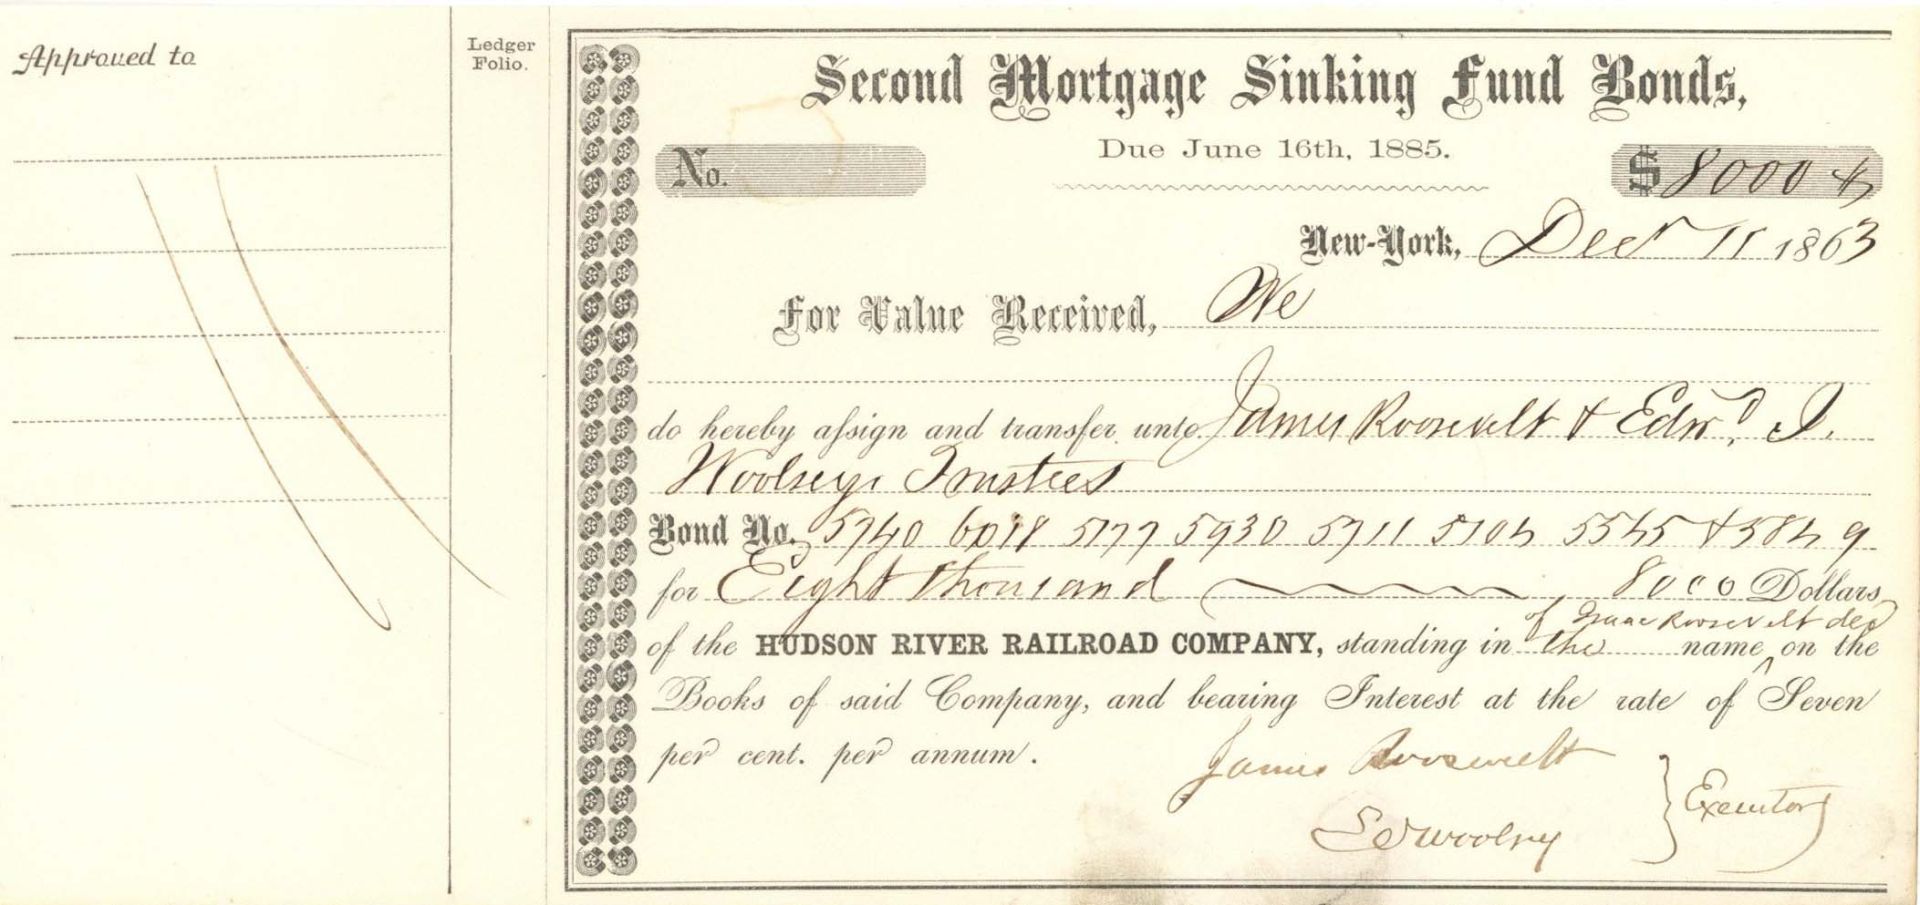 Approved to
Ledger
Folio.
Second Mortgage Sinking Fund Bonds,
Due June 16th, 1885.
No.
$ 8000
New-York, Decr 11 1863
For Value Received, We
do hereby assign and transfer unto James Roosevelt & Edwd. J.
Woolsey, Trustees
Bond No. 5740 5177 5930 5711 5545
for Eight thousand 8000 Dollars
of Isaac Roosevelt decd
of the HUDSON RIVER RAILROAD COMPANY, standing in the name on the
Books of said Company, and bearing Interest at the rate of Seven
per cent. per annum.
James Roosevelt
EJWoolsey
Executors